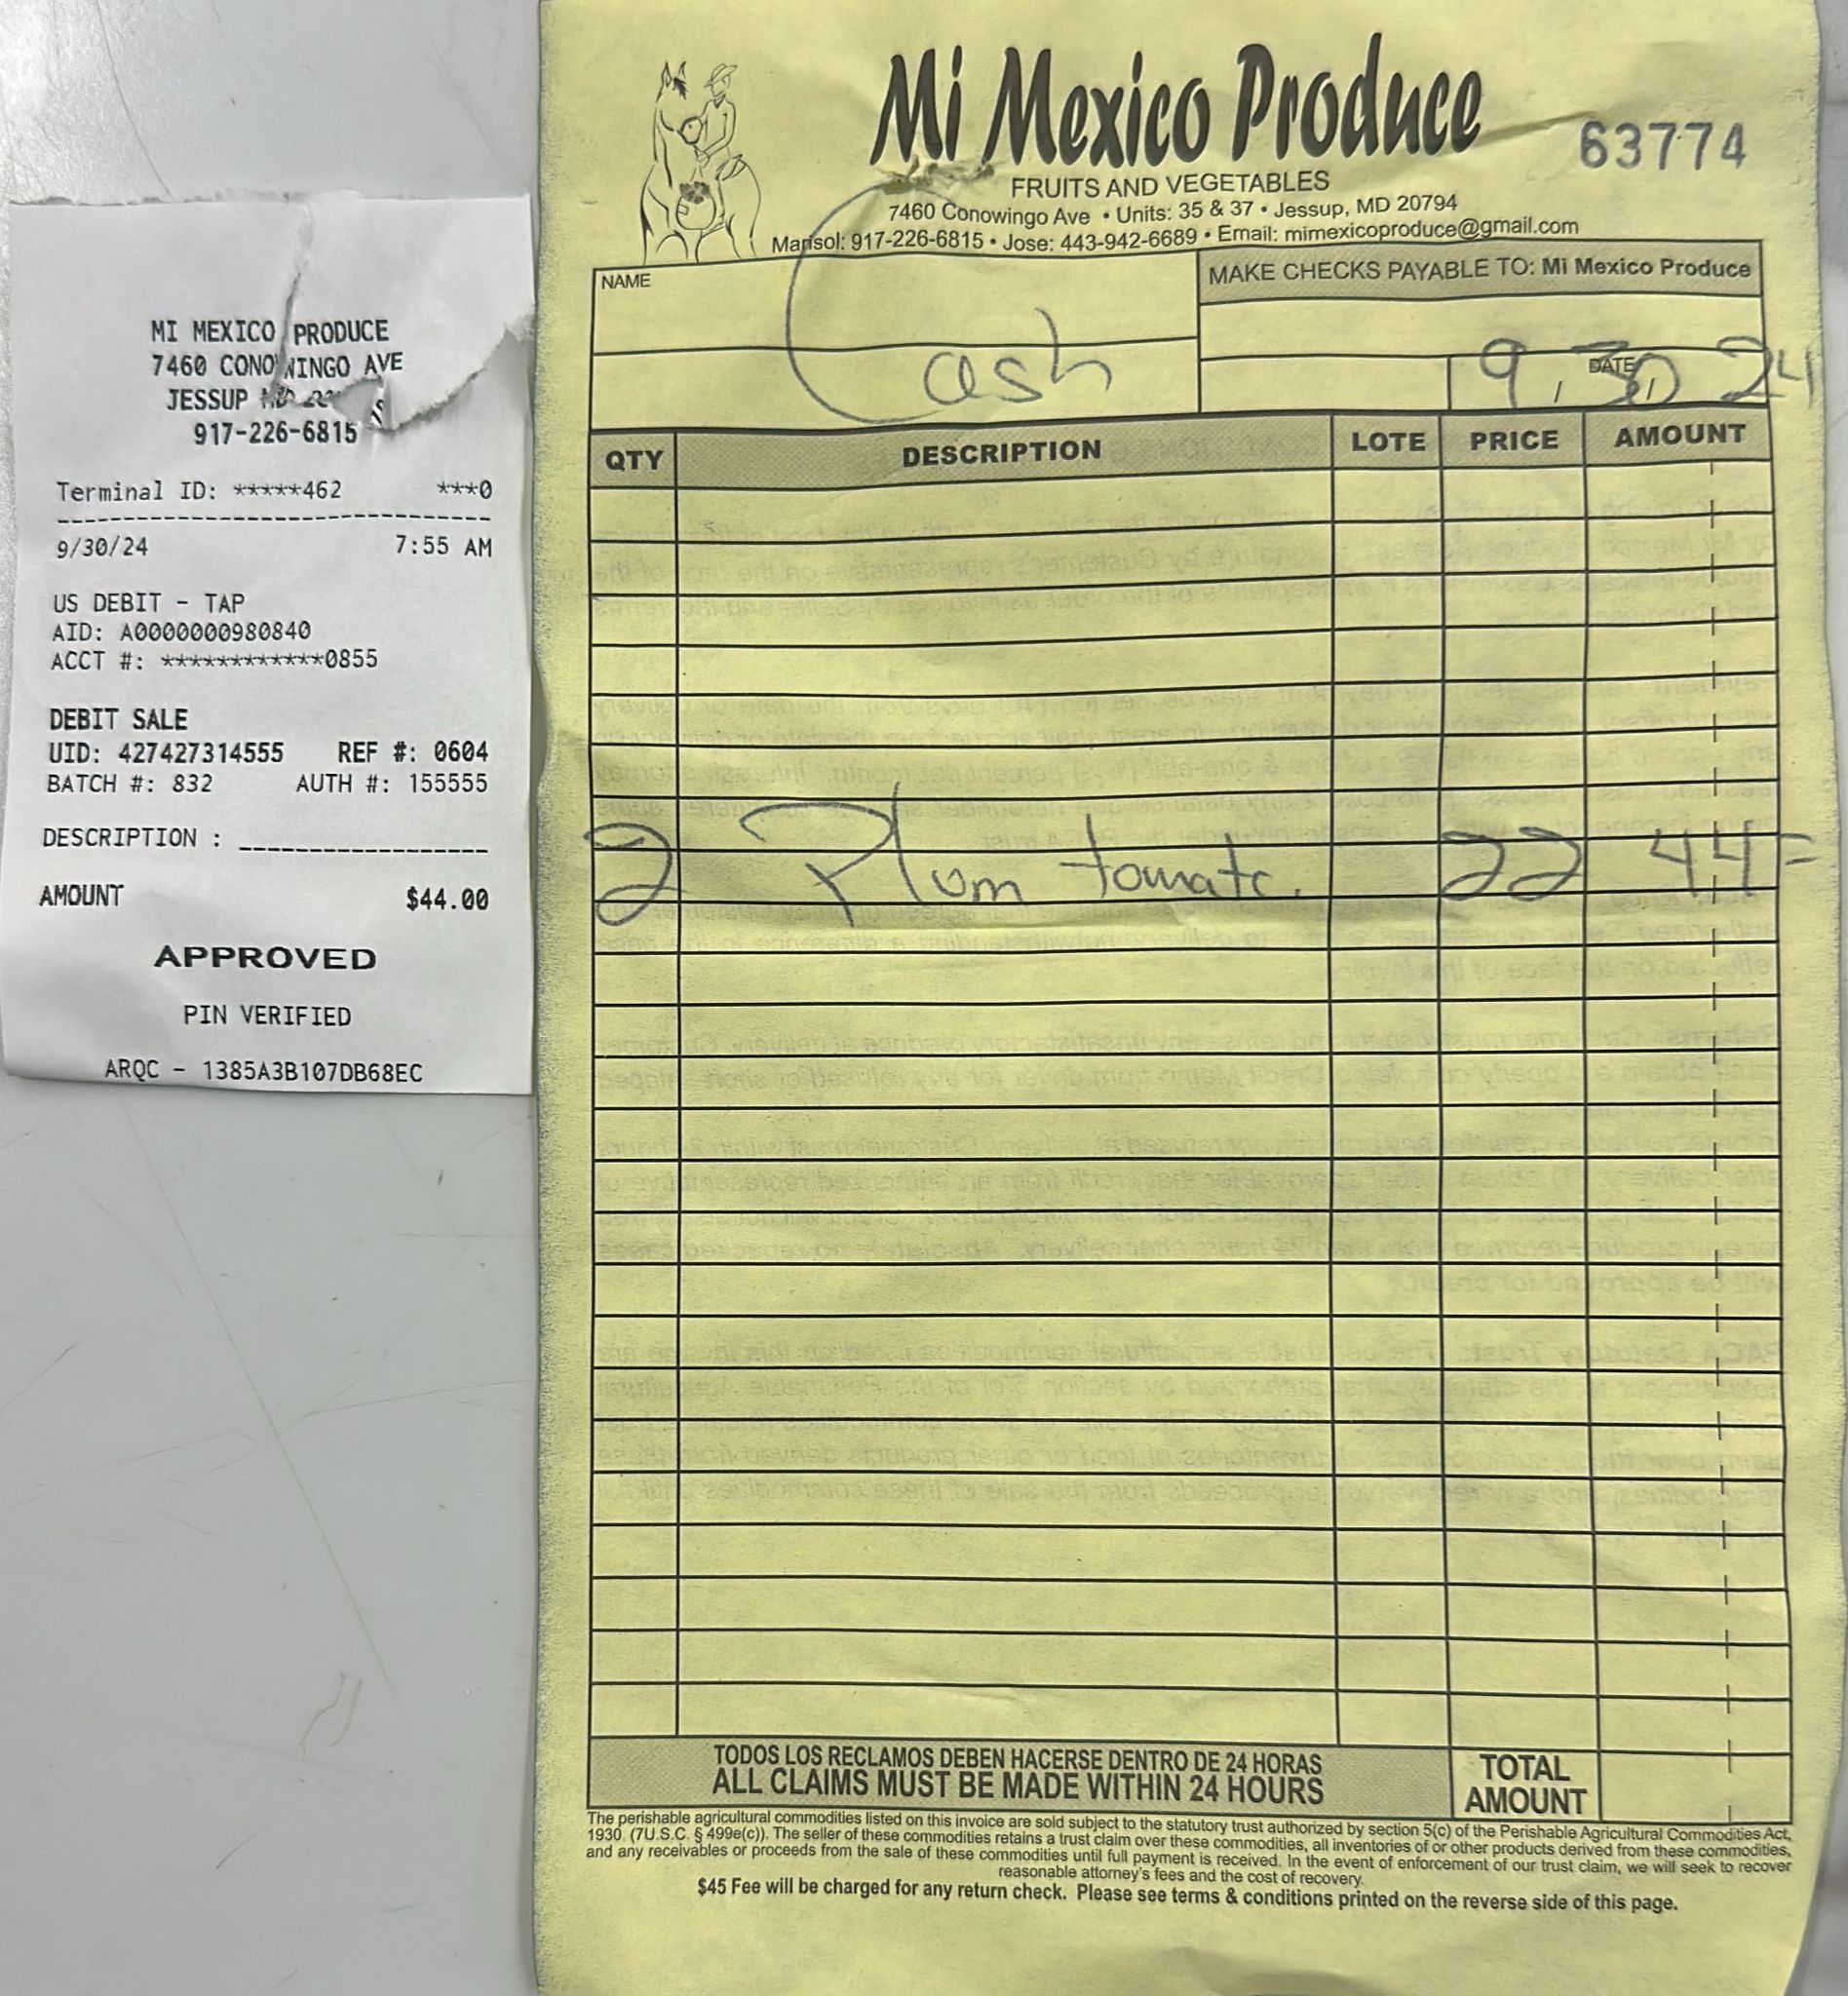 MI MEXICO PRODUCE
7460 CONOWINGO AVE
JESSUP
917-226-6815
Terminal ID: *****462 ***0
9/30/24 7:55 AM
US DEBIT - TAP
AID: A0000000980840
ACCT #: ************0855
DEBIT SALE
UID: 427427314555 REF #: 0604
BATCH #: 832 AUTH #: 155555
DESCRIPTION :
AMOUNT $44.00
APPROVED
PIN VERIFIED
ARQC - 1385A3B107DB68EC
Mi Mexico Produce
63774
FRUITS AND VEGETABLES
7460 Conowingo Ave • Units: 35 & 37 • Jessup, MD 20794
Marisol: 917-226-6815 • Jose: 443-942-6689 • Email: mimexicoproduce@gmail.com
NAME
MAKE CHECKS PAYABLE TO: Mi Mexico Produce
Cash
DATE
9, 30, 24
QTY DESCRIPTION LOTE PRICE AMOUNT
2 Plum tomato. 22 44=
TODOS LOS RECLAMOS DEBEN HACERSE DENTRO DE 24 HORAS
ALL CLAIMS MUST BE MADE WITHIN 24 HOURS
TOTAL
AMOUNT
The perishable agricultural commodities listed on this invoice are sold subject to the statutory trust authorized by section 5(c) of the Perishable Agricultural Commodities Act,
1930. (7U.S.C. § 499e(c)). The seller of these commodities retains a trust claim over these commodities, all inventories of or other products derived from these commodities,
and any receivables or proceeds from the sale of these commodities until full payment is received. In the event of enforcement of our trust claim, we will seek to recover
reasonable attorney's fees and the cost of recovery.
$45 Fee will be charged for any return check. Please see terms & conditions printed on the reverse side of this page.